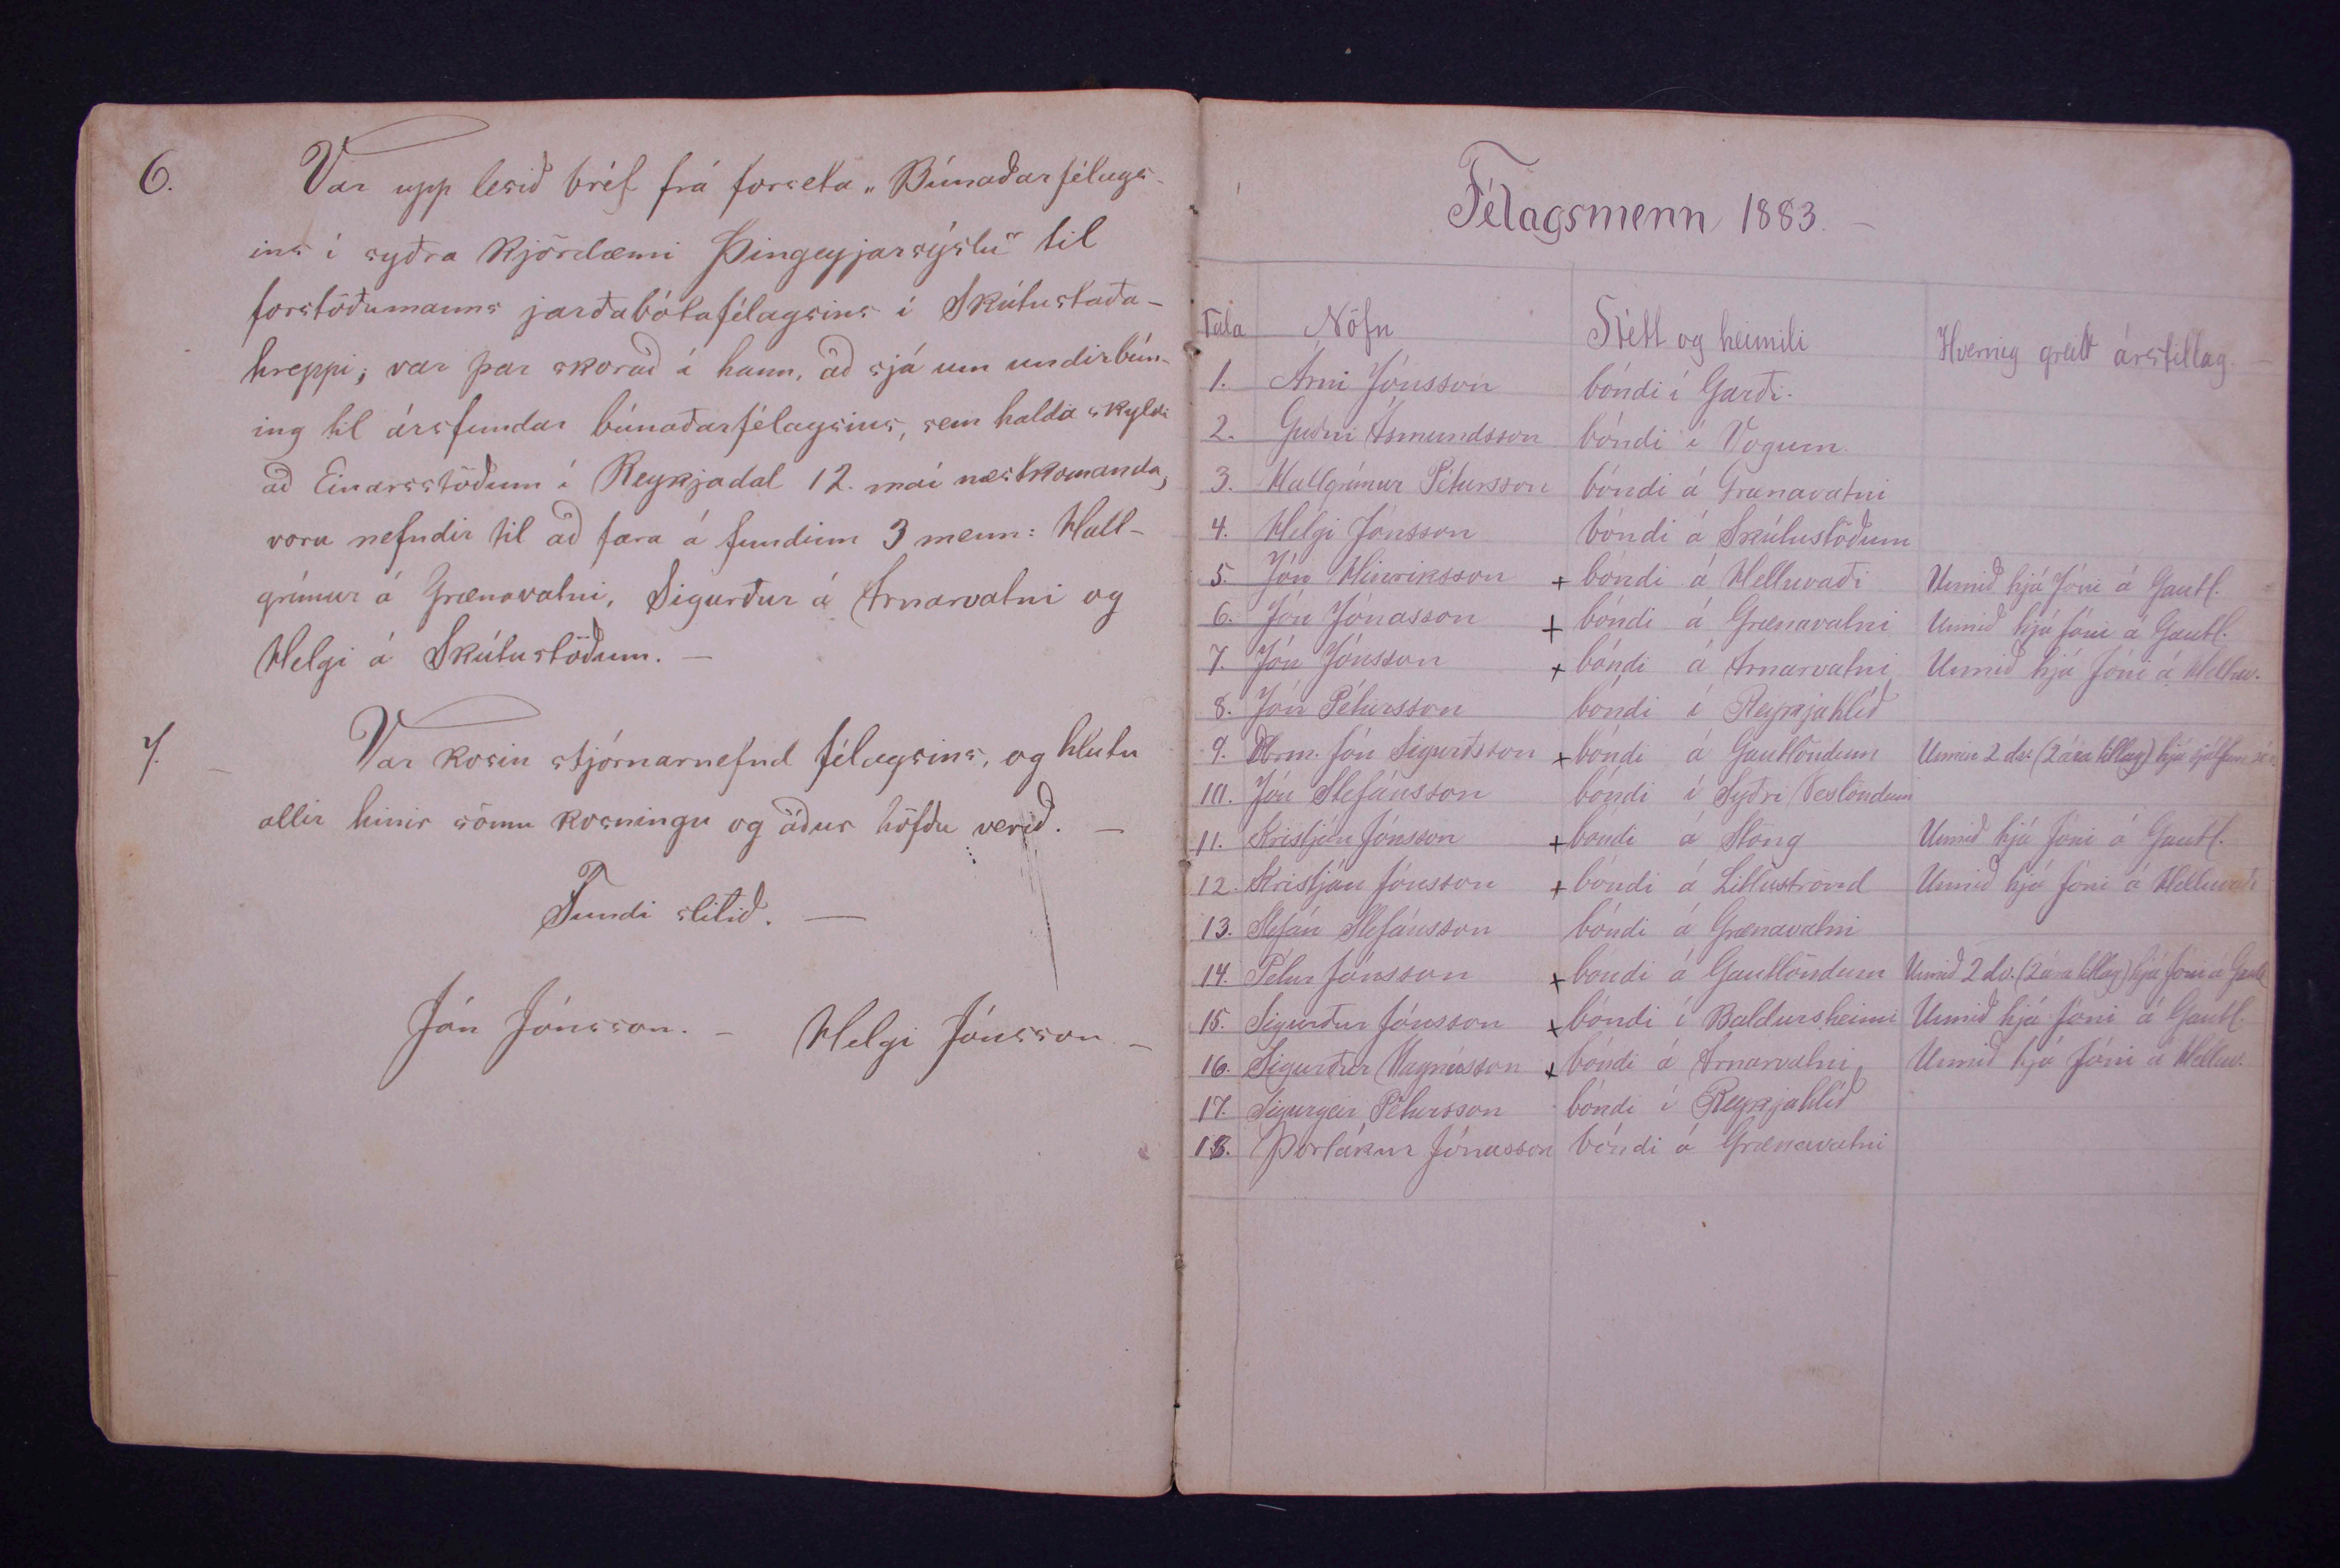 6. Var upp lesið bréf frá forseta „Búnaðarfélags-
ins í syðra kjördæmi Þingeyjarsýslu“ til
forstöðumanns jarðabótafélagsins í Skútustaða-
hreppi; var þar skorað á hann, að sjá um undirbún-
ing til ársfundar búnaðarfélagsins, sem halda skyldi
að Einarsstöðum í Reykjadal 12. maí næstkomanda,
voru nefndir til að fara á fundinn 3 menn: Hall-
grímur á Grænavatni, Sigurður á Arnarvatni og
Helgi á Skútustöðum. —
7. — Var kosin stjórnarnefnd félagsins, og hlutu
allir hinir sömu kosningu og áður höfðu verið. —
Fundi slitið. —
Jón Jónsson. — Helgi Jónsson. —
Félagsmenn 1883. —
Tala Nöfn Stétt og heimili Hvernig greitt árstillag. —
1. Árni Jónsson bóndi í Garði.
2. Guðni Ásmundsson bóndi í Vogum.
3. Hallgrímur Pétursson bóndi á Grænavatni
4. Helgi Jónsson bóndi á Skútustöðum
5. Jón Hinriksson + bóndi á Helluvaði Unnið hjá Jóni á Gautl.
6. Jón Jónasson + bóndi á Grænavatni Unnið hjá Jóni á Gautl.
7. Jón Jónsson + bóndi á Arnarvatni Unnið hjá Jóni á Helluv.
8. Jón Pétursson bóndi í Reykjahlíð
9. Jón Sigurðsson + bóndi á Gautlöndum Unnin 2 ds. (2 ára tillag) hjá sjálfum sér
10. Jón Stefánsson bóndi í Syðri Neslöndum
11. Kristján Jónsson + bóndi á Stöng Unnið hjá Jóni á Gautl.
12. Kristján Jónsson + bóndi á Litluströnd Unnið hjá Jóni á Helluvaði
13. Stefán Stefánsson bóndi á Grænavatni
14. Pétur Jónsson + bóndi á Gautlöndum Unnið 2 ds. (2 ára tillag) hjá Jóni á Gautl
15. Sigurður Jónsson + bóndi í Baldursheimi Unnið hjá Jóni á Gautl.
16. Sigurður Magnússon + bóndi á Arnarvatni Unnið hjá Jóni á Helluv.
17. Sigurgeir Pétursson bóndi í Reykjahlíð
18. Þorlákur Jónasson bóndi á Grænavatni